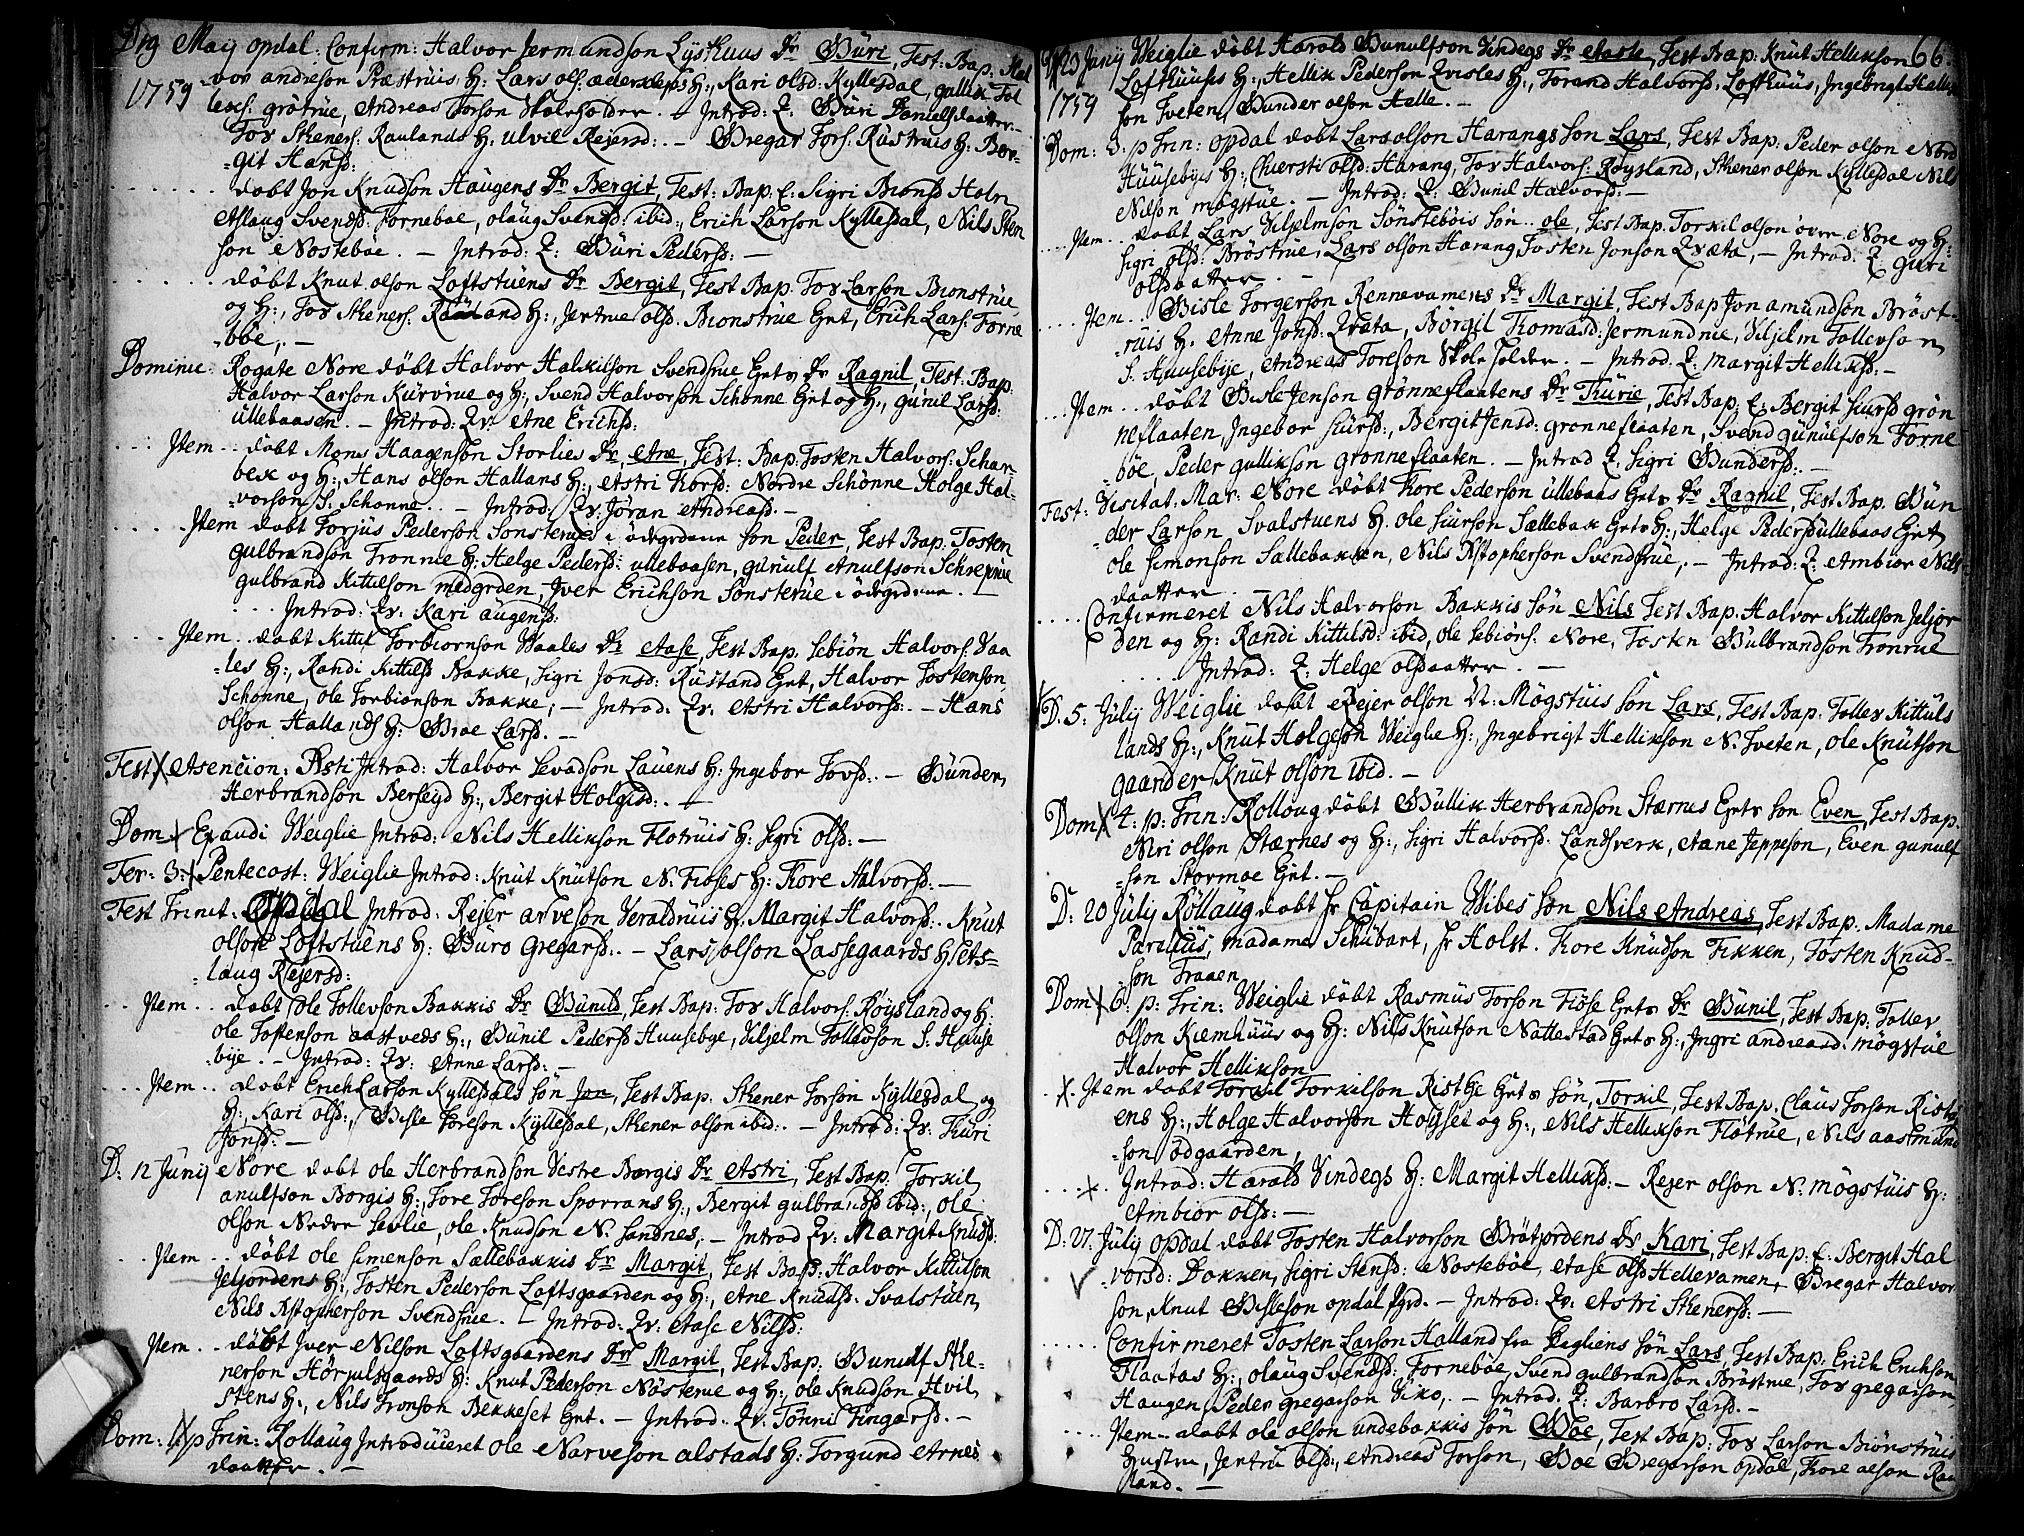 D. 19 Maij opdal: Confirm: Halvor Jermundson Lysthuus Dr Büri, Test: Bap: Hal
1759 vor andreson Præstruis H: Lars ols: H:, Kari olsd: Kyllesdal, gullik Tol
lefs: grötrue, Andreas Torson Skoleholder. – Introd: Q: Büri Danielsdaatter –
Tor Stheners: Raulands H: ulvil Rejersd: – Gregar Tors: Rustruis H: Ber-
git Hansd:
döbt Jon Knudson Haugens Dr Bergit, Test: Bap: E: Sigri Bionsd Holm
Aslaug Svendsd: Fornebøe, olaug Svendsd: ibid:, Erich Larson Kyllesdal, Nils Sten
son Nostebøe. – Introd: Q: Büri Pedersd: –
döbt Knut olson Loftstuens Dr Bergit, Test Bap. Tor Larson Bionstrue
og H:, Tor Stheners: Rauland H:, Jertrue olsd: Bionstrue Gret, Erich Lars: Forne
bøe, –
Dominic: Rogate Nore döbt Halvor Halvkilson Svendsrue Grets Dr Ragnil, Test: Bap:
Halvor Larson Kürvrue og H:, Svend Halvorson Schonne Gret og H:, Gunil Larsd:
ullebaasen. – Introd: Qv: Ane Erichsd:
Item döbt Mons Haagenson Storlies Dr Ane, Test: Bap: Tosten Halvors: Schar
bek og H:, Hans olson Hallans H:, Astri Torsd: Nordre Schönne Holge Hal-
vorson S. Schonne. – Introd: Qv: Jöran Andreasd: –
Item döbt Torjus Pederson Sonsterud i ödegrdene son Peder, Test Bap: Tosten
gulbrandson Tronrue H: Helge Pedersd: ullebaasen, gunulf Anulfson Schreprue
gulbrand Kittilson medgrden, Iver Erichson Sonsterue i ödegrdene. –
Introd: Qv: Kari augensd:
Item döbt Kittil Torbiornson Vaales Dr Aase, Test Bap. Sebiön Halvors: Vaa
les H:, Randi Kittilsd Bakke, Sigri Jonsd: Rüstand Gret, Halvor Tostenson
Schonne, ole Torbionson Bakke; – Introd: Qv: Astri Halvorsd: – Hans
olson Hallands H: Groe Larsd. –
Fest X Asencion: Xsti Introd: Halvor Sevadson Lauens H: Ingebor Tovsd: – Günder
Herbrandson Berseyd H:, Bergit Holgisd: –
Dom: X Exaudi Weiglie Introd: Nils Hellikson Flotruis H: Sigri olsd: –
Fer: 3: X Pentecost: Weiglie Introd: Knut Knutson N. Fioses H: Tore Halvorsd: –
Fest Trinit: Opdal Introd: Rejer arveson Veraldruis H: Margit Halvorsd: Knut
olson Loftstuens H: Büro Gregarsd: – Lars olson Lassegaards H: As-
laug Rejersd:
Item döbt Ole Tollevson Bakkis Dr Gunild, Test Bap: Tor Halvors: Röysland og H:
ole Tostenson aastveds H:, Günil Pedersd Huusebye, Viljelm Tollevson S. Huuse
bye. – Introd: Qv: Anne Larsd: –
Item döbt Erich Larson Kyllesdals Sön Jon, Test Bap: Sthener Torson Kyllesdal og
H: Kari olsd:, Gisle Toreson Kyllesdal, Sthener olson ibid: – Introd: Qv: Turi
Jonsd: –
D: 12 Junij Nore döbt ole Herbrandson Vestre Borgis Dr Astri, Test Bap: Torkil
anulfson Borgis H:, Tore Toreson Sporrans H:, Bergit gulbransd ibid:, ole
olson Nedre Sevlie, ole Knudson N. Sandnes, – Introd Qv: Margit Knudsd:
Item döbt ole Simenson Sællebakkis Dr Margit, Test Bap: Halvor Kittilson
Jelsjordens H:, Tosten Pederson Loftsgaarden og H:, Ane Knudsd: Svalstuen
Nils Xstopherson Svendsrue. – Introd: Qv: Aase Nilsd:
Item döbt Iver Nilson Loftsgaardens Dr Margil, Test Bap: Gunulf Sthe-
nerson Hörjulsgaards H: Knut Pederson Nösterue og H:, ole Knudson Hvil
stens H:, Nils Tronson Bekkeset Gret. – Introd: Qv. Tönni Fingarsd. –
Dom: 1 X p Trin: Rollaug Introduceret ole Narveson alstads H: Torgund Arnes
daatter. –
D 23 Junij Weiglie döbt Harold Gunulfson Vindegs Dr Aaste, Test Bap: Knut Hellikson 66.
1759 Lofthuuses H:, Hellik Pederson Qvisles H:, Torand Halvorsd: Lofthuus, Ingebrigt Hellik
son Tveten, Günder olson Helle. –
Dom: 3. p Trin: opdal döbt Lars olson Harangs Son Lars, Test Bap: Peder olson Nord
Huusebyes H:, Chiersti olsd: Harang, Tor Halvors: Röysland, Sthener olson Kyllesdal Nils
Nilson mogstue. – Introd: Q: Gunil Halvorsd: –
Item döbt Lars Viljelmson Sönsteböis Sön ole, Test Bap. Torkil olson över Nore og H:
Sigri olsd: Bröstrue, Lars olson Harang Tosten Jonson Qvæta, – Introd: Q: Guri
olsdaatter. –
Item Gisle Torgerson Rennevamens Dr Margit, Test Bap Jon amundson Bröst-
ruis H: Anne Jonsd: Qvæta, Börgil Tomasd: Jermundrue, Viljelm Tollevson
S. Huusebye, Andreas Toreson Skoleholder. – Introd: Q: Margit Helliksd: –
Item döbt Gisle Jenson grønneflaatens Dr Türie, Test Bap. E: Bergit Siursd grön
neflaaten, Ingebor Siursd:, Bergit Jensd: gronneflaaten, Svend gunulfson Forne
böe, Peder gullikson gronneflaaten. – Introd Q. Sigri Gundersd: –
Fest: Visitat: Mar: Nore döbt Tore Pederson ullebaas Grets Dr Ragnil, Test Bap. Gün
der Larson Svalstuens H: ole Siurson Sællebak Grets H:, Helge Pedersd ullebaas Gret,
ole Simonson Sællebakken, Nils Xstopherson Svendsrue, – Introd: Q: Ambior Nils
daatter. –
Confirmeret Nils Halvorson Bakkis Sön Nils Test Bap: Halvor Kittelson Jeljor
den og H: Randi Kittulsd: ibid, ole Sebiörs: Nore, Tosten Gulbrandson Tronrue
Introd: Q: Helge olsdaatter. –
X D: 5: Julij Weiglie döbt Rejer olson N: Mögstuis Sön Lars, Test Bap. Tollev Kittuls
lands H:, Knut Holgeson Weiglie H:, Ingebrigt Hellikson N. Tveten, ole Knutson
gaarder, Knut olson ibid. –
Dom X 4: p: Trin: Rolloug döbt Güllik Herbrandson Stærnes Grets Son Even, Test Bap.
Niri olson Stærnes og H:, Sigri Halvorsd: Landsverk, Aane Jeppeson, Even gunulf
son Stormoe Gret. –
D: 20 Julij Röllaug döbt Hr Capitain Wibes Son Nils Andreas, Test Bap. Madame
Parelius, madame Schübart, Hr Holst. Tore Knudson Fikken, Tosten Knud-
son Traaen
Dom X 6: p: Trin: Weiglie döbt Rasmus Torson Fiöse Grets Dr Günil, Test Bap: Tollev
olson Kiemhüus og H: Nils Knutson Nattestad Grets H:, Ingri andreasd: mögstue
Halvor Hellikson
X Item döbt Torkil Torkilson Ristje Grets Sön, Torkil, Test Bap. Claus Torson Ristj
ens H:, Holge Halvorson Holyset og H:, Nils Hellikson Flötrue, Nils aasmund
son ödgaarden,
X Introd: Harald Vindegs H: Margit Helliksd: – Rejer olson N: mögstuis H:
Ambior olsd: –
D: 27. Julij opdal döbt Tosten Halvorson Brötjordens Dr Kari, Test Bap: E: Bergit Hal
vorsd: Dokken, Sigri Stensd: Nostebøe, Aase olsd Hellevamen, Gregar Halvor
son, Knut Gisleson opdal Pgrd. – Introd: Qv: Astri Sthenersd: –
Confirmeret Tosten Larson Halland fra Degliens Sön Lars, Test Bap: Erich Erichson
Flaatas H:, olaug Svendsd: Fornebøe, Svend gulbrandson Bröstrue, Tor gregarson
Haugen, Peder gregarson Viko, – Introd: Q: Barbro Larsd. –
Item – döbt ole olson undebakkis Sön Goe, Test Bap: Tor Larson Biönstruis
Hustru, Jertru olsd:, Andreas Torson, Goe Gregarson opdal, Tore olson Rau
land. –